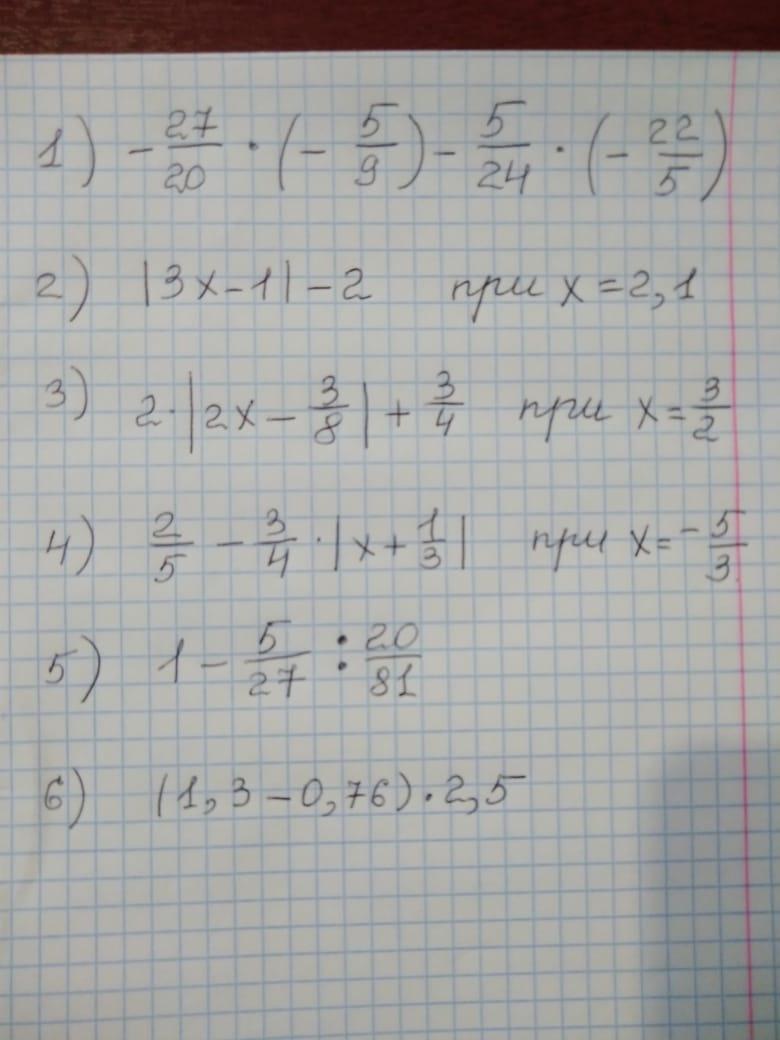 1) - 27/20 · (- 5/9) - 5/24 · (- 22/5)
2) |3x-1| - 2 при x = 2,1
3) 2·|2x - 3/8| + 3/4 при x = 3/2
4) 2/5 - 3/4 · |x + 1/3| при x = - 5/3
5) 1 - 5/27 : 20/81
6) (1,3 - 0,76) · 2,5